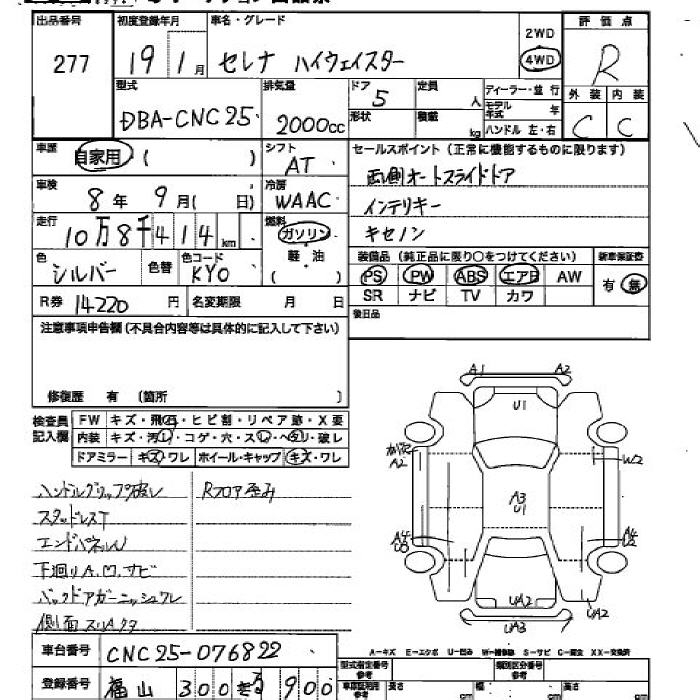 出品番号 初度登録年月 車名・グレード 評価点
277 19 1月 セレナ ハイウェイスター 2WD 4WD R
型式 排気量 ドア 定員 ディーラー・並行 外装 内装
DBA-CNC25 2000cc 5 人 モデル年式 年 C C
形状 積載 kg ハンドル 左・右
車歴 自家用 ( ) シフト AT セールスポイント (正常に機能するものに限ります)
両側オートスライドドア
車検 8年 9月( 日) 冷房 WAAC インテリキー
走行 10万8千414km 燃料 ガソリン キセノン
軽・油 ( )
色 シルバー 色替 色コード KY0 装備品 (純正品に限り○をつけてください) 新車保証書
PS PW ABS エアB AW 有・無
R券 14220円 名変期限 月 日 SR ナビ TV カワ
後日品
注意事項申告欄 (不具合内容等は具体的に記入して下さい)
修復歴 有 (箇所 )
検査員記入欄 FW キズ・飛石・ヒビ割・リペア跡・X要
内装 キズ・汚レ・コゲ・穴・スレ・ヘタリ・破レ
ドアミラー キズ・ワレ ホイール・キャップ キズ・ワレ
ハンドルグリップ破レ Rフロア歪み
スタッドレスT
エンドパネルU
下廻りA.U.サビ
バックドアガーニッシュワレ
側面スリキズ
A1 A2
U1
A2 W2
A3
U1
A4
U3
A4
U2
UA2 UA2
UA3
A-キズ E-エクボ U-凹み W-補修跡 S-サビ C-腐食 XX-交換済
車台番号 CNC25-076822 型式指定番号 参考 類別区分番号 参考
登録番号 福山 300 900 長さ cm 幅 cm 高さ cm